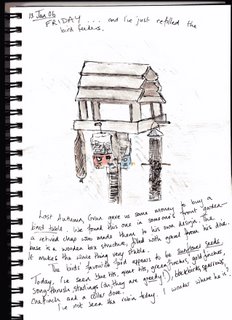 13 Jan 06
FRIDAY . . . and I've just refilled the
bird feeders.
Last Autumn, Gran gave us some money to buy a
bird table. We found this one in someone's front garden -
a retired chap who made them to his own design. The
base is a wooden box structure, filled with gravel from his drive.
It makes the whole thing very stable.
The birds' favorite food appears to be sunflower seeds.
Today, I've seen blue tits, great tits, greenfinches, goldfinches,
song-thrush, starlings (aren't they are greedy!), blackbirds, sparrows,
chaffinch and a collar dove.
I've not seen the robin today. I wonder where he is?